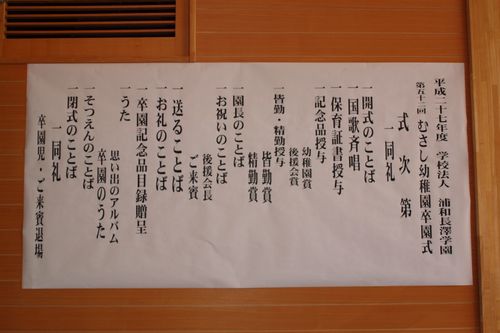 平成二十七年度　学校法人　浦和長澤学園
第五十二回 むさし幼稚園卒園式
式次第
一同礼
一開式のことば
一国歌斉唱
一保育証書授与
一記念品授与
幼稚園賞
後援会賞
一皆勤・精勤授与
皆勤賞
精勤賞
一園長のことば
一お祝いのことば
後援会長
ご来賓
一送ることば
一お礼のことば
一卒園記念品目録贈呈
一うた
思い出のアルバム
卒園のうた
一そつえんのことば
一閉式のことば
一同礼
卒園児・ご来賓退場